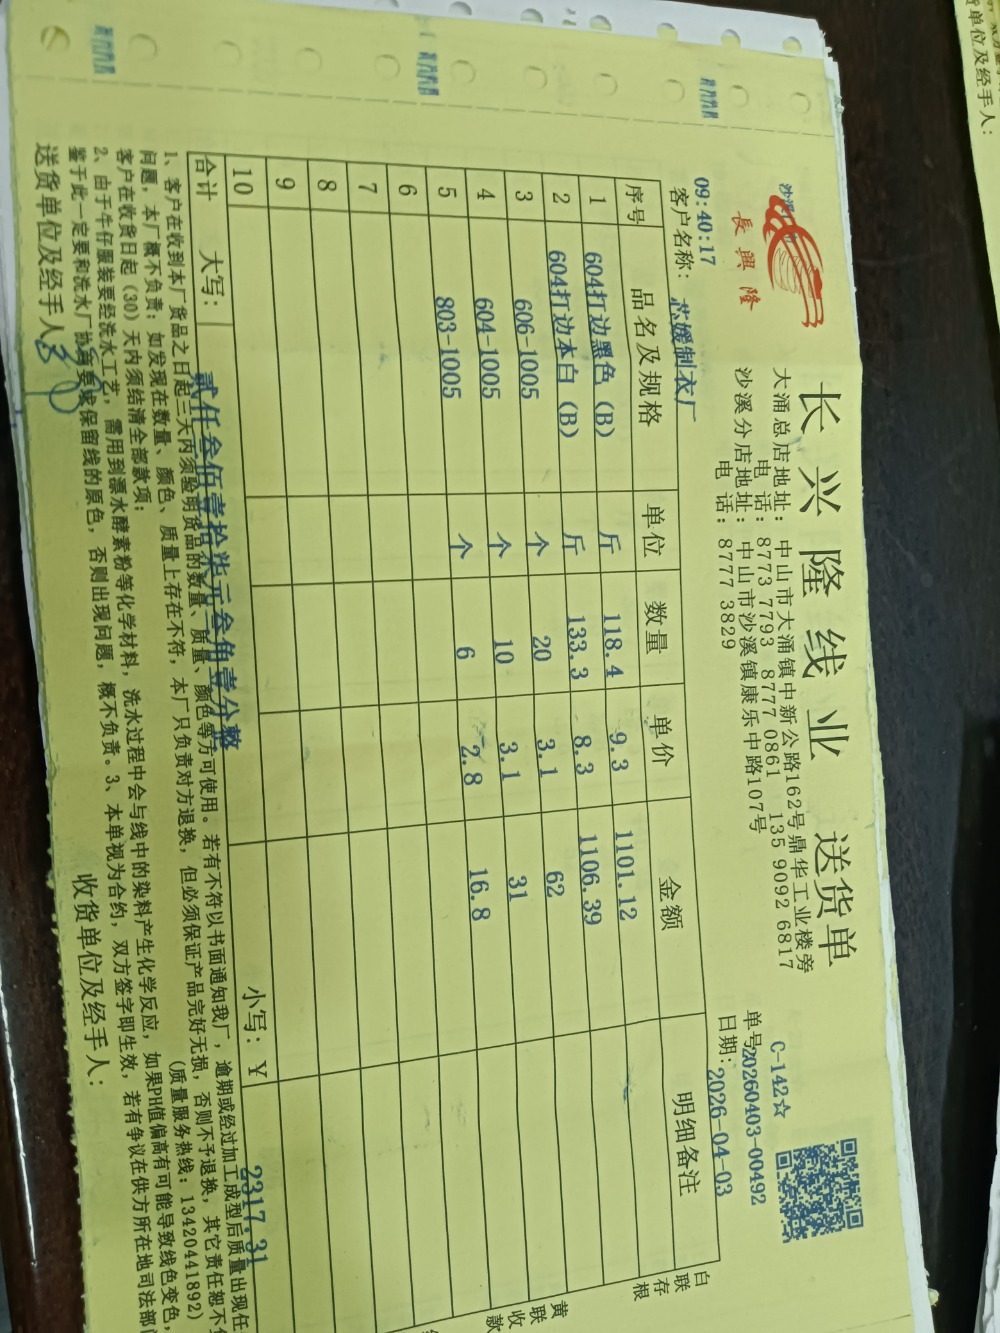 长兴隆线业 送货单
沙溪
長興隆
大涌总店地址：中山市大涌镇中新公路162号鼎华工业楼旁
电话：8773 7793 8777 0861 135 9092 6817
沙溪分店地址：中山市沙溪镇康乐中路107号
电话：8777 3829
C-142☆
单号20260403-00492
日期：2026-04-03
09:40:17
客户名称：芯媛制衣厂
序号 品名及规格 单位 数量 单价 金额 明细备注
1 604打边黑色（B） 斤 118.4 9.3 1101.12
2 604打边本白（B） 斤 133.3 8.3 1106.39
3 606-1005 个 20 3.1 62
4 604-1005 个 10 3.1 31
5 803-1005 个 6 2.8 16.8
6
7
8
9
10
合计 大写：贰仟叁佰壹拾柒元叁角壹分整 小写：￥ 2317.31
1、客户在收到本厂货品之日起三天内须验明货品的数量、质量、颜色等方可使用。若有不符以书面通知我厂，逾期或经过加工成型后质量出现任
问题，本厂概不负责；如发现在数量、颜色、质量上存在不符，本厂只负责对方退换，但必须保证产品完好无损，否则不予退换，其它责任恕不
客户在收货日起（30）天内须结清全部款项；（质量服务热线：13420441892）
2、由于牛仔服装要经洗水工艺，需用到漂水酵素粉等化学材料，洗水过程中会与线中的染料产生化学反应，如果PH值偏高有可能导致线色变色，
鉴于此一定要和洗水厂协商要求保留线的原色，否则出现问题，概不负责。3、本单视为合约，双方签字即生效，若有争议在供方所在地司法部门
送货单位及经手人 收货单位及经手人：
白联存根
黄联收款
货单位及经手人：